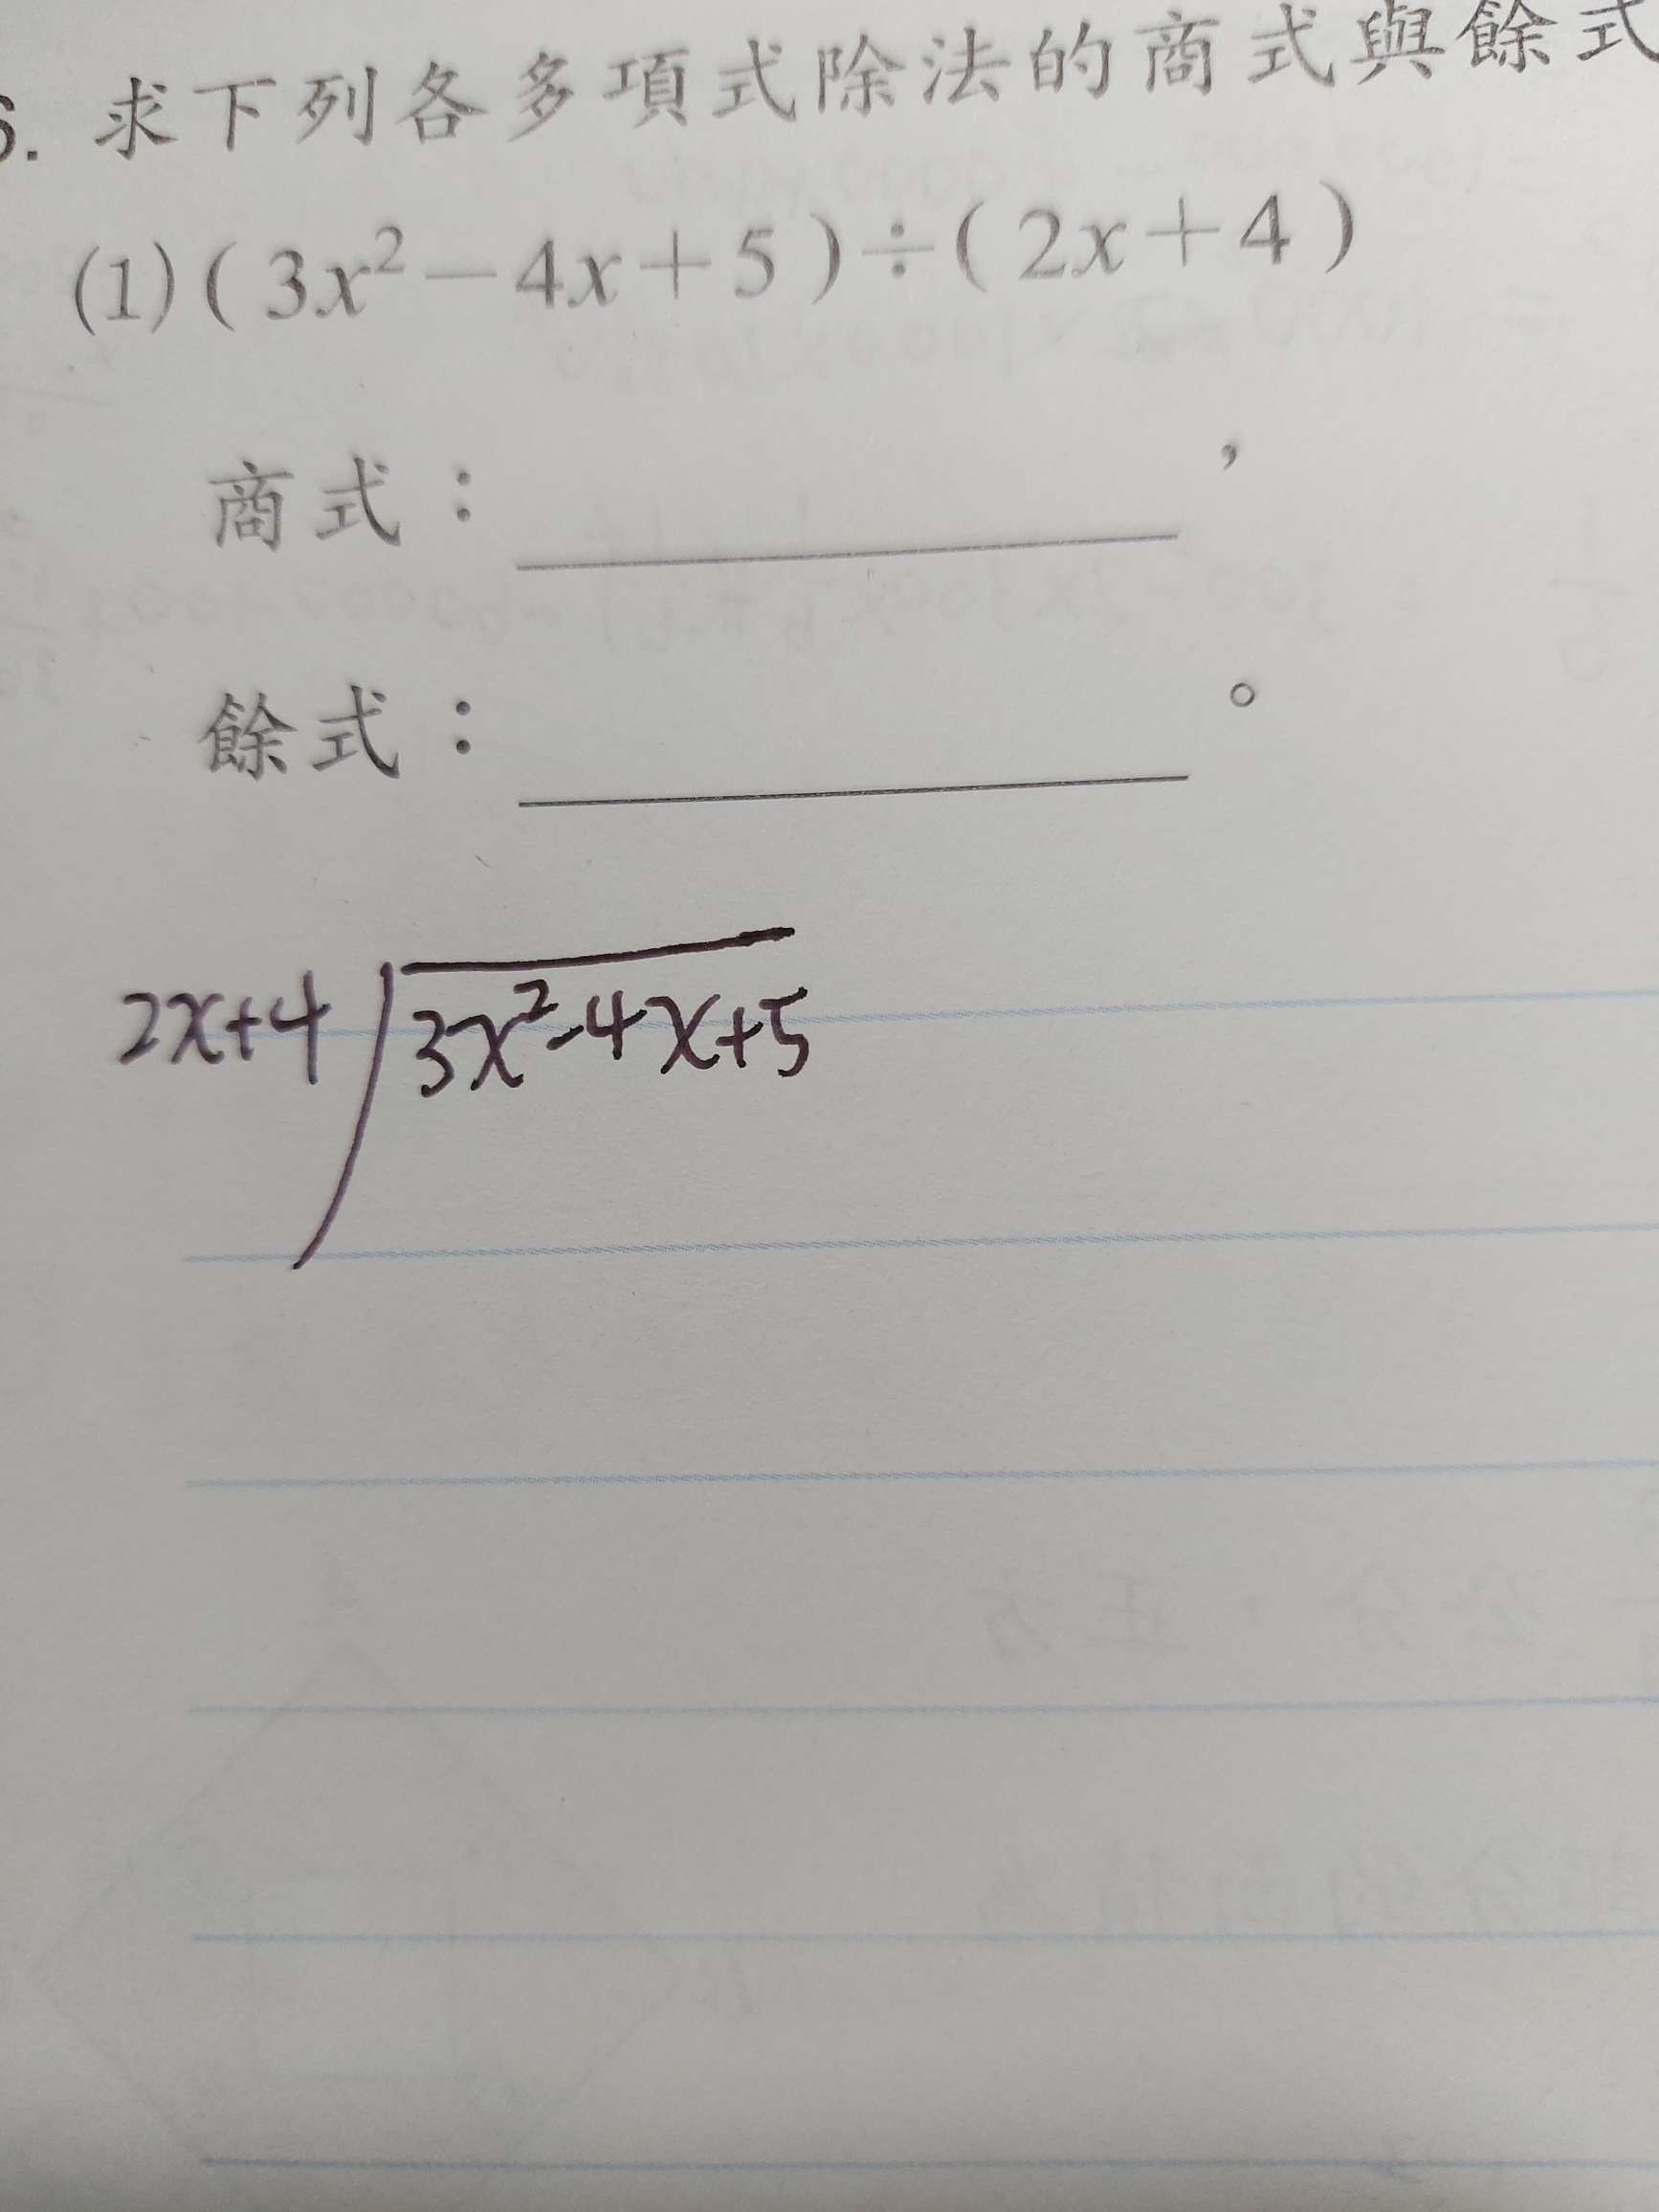 6. 求下列各多項式除法的商式與餘式
(1) ( 3x² － 4x ＋ 5 ) ÷ ( 2x ＋ 4 )
商式：＿＿＿＿＿＿，
餘式：＿＿＿＿＿＿。
2x+4 ) 3x²-4x+5